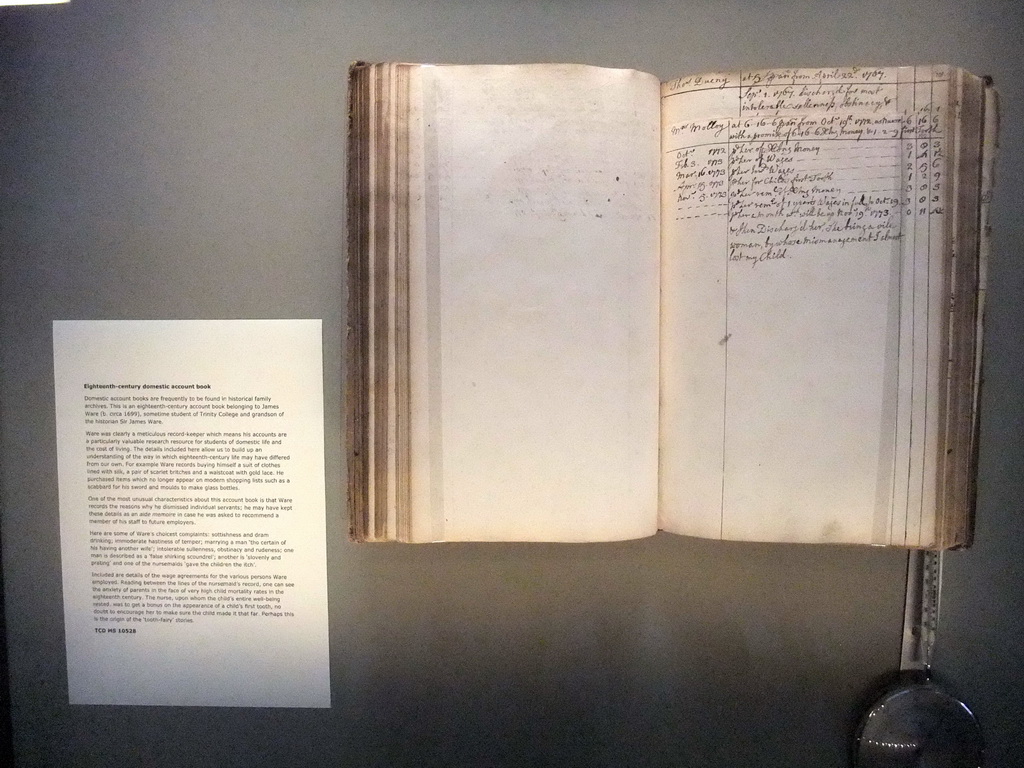 Eighteenth-century domestic account book
Domestic account books are frequently to be found in historical family
archives. This is an eighteenth-century account book belonging to James
Ware (b. circa 1699), sometime student of Trinity College and grandson of
the historian Sir James Ware.
Ware was clearly a meticulous record-keeper which means his accounts are
a particularly valuable research resource for students of domestic life and
the cost of living. The details included here allow us to build up an
understanding of the way in which eighteenth-century life may have differed
from our own. For example Ware records buying himself a suit of clothes
lined with silk, a pair of scarlet britches and a waistcoat with gold lace. He
purchased items which no longer appear on modern shopping lists such as a
scabbard for his sword and moulds to make glass bottles.
One of the most unusual characteristics about this account book is that Ware
records the reasons why he dismissed individual servants; he may have kept
these details as an aide memoire in case he was asked to recommend a
member of his staff to future employers.
Here are some of Ware's choicest complaints: sottishness and dram
drinking; immoderate hastiness of temper; marrying a man 'tho certain of
his having another wife'; intolerable sullenness, obstinacy and rudeness; one
man is described as a 'false shirking scoundrel'; another is 'slovenly and
prating' and one of the nursemaids 'gave the children the itch'.
Included are details of the wage agreements for the various persons Ware
employed. Reading between the lines of the nursemaid's record, one can see
the anxiety of parents in the face of very high child mortality rates in the
eighteenth century. The nurse, upon whom the child's entire well-being
rested, was to get a bonus on the appearance of a child's first tooth, no
doubt to encourage her to make sure the child made it that far. Perhaps this
is the origin of the 'tooth-fairy' stories.
TCD MS 10528
from April 22
discharg'd for most
intolerable sullenness, obstinacy &
Mrs Molloy at 6-16-6 from Octr
with a promise of money &
Octr
Feb 3. her of Wages
Mar. 16 her Wages
her for Childs first Tooth
Novr 3. money
Wages in full to Octr
a month
then Discharg'd her, she being a vile
woman, by whose mismanagement I almost
lost my Child.